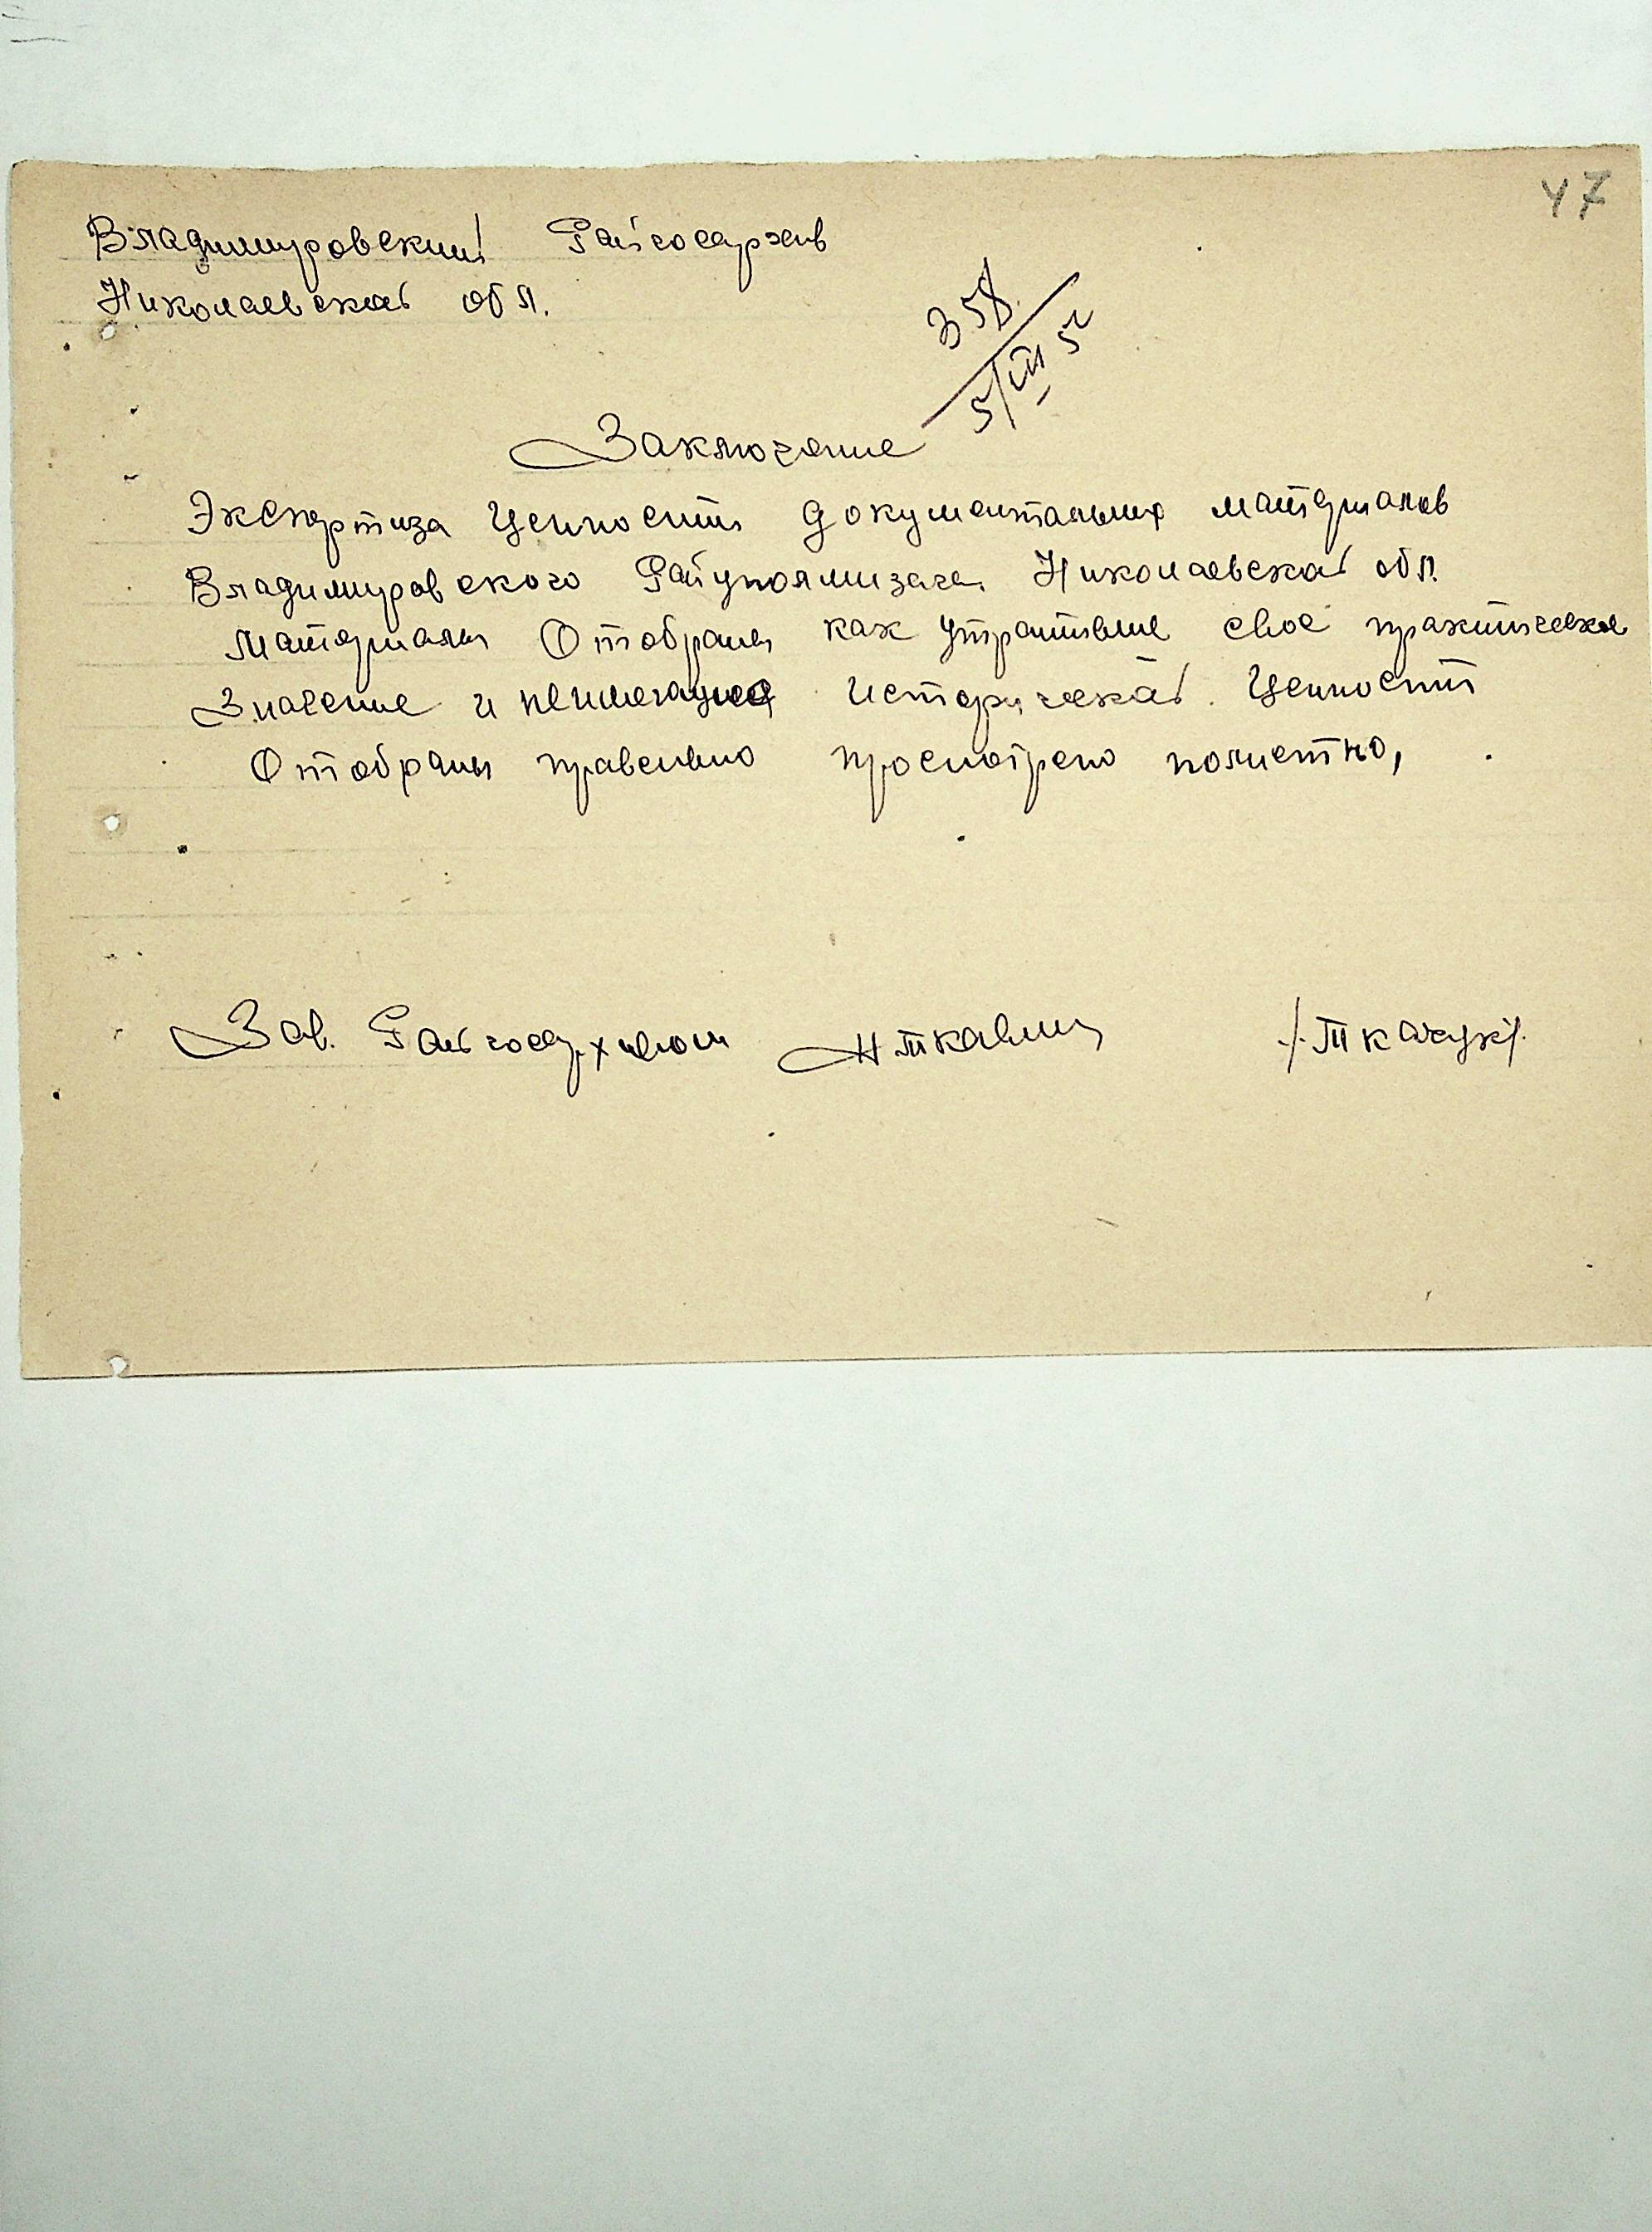 47
Владимировский Райгосархив
Николаевской обл.
358
5/III 52
Заключение
Экспертиза ценности документальных материалов
Владимировского Райуполмизага Николаевской обл.
Материалы Отобраны как утратившие свое практическое
Значение и неимеющие исторической ценности
Отобраны правельно просмотрено полистно,
Зав. Райгосархивом /Ткачук/